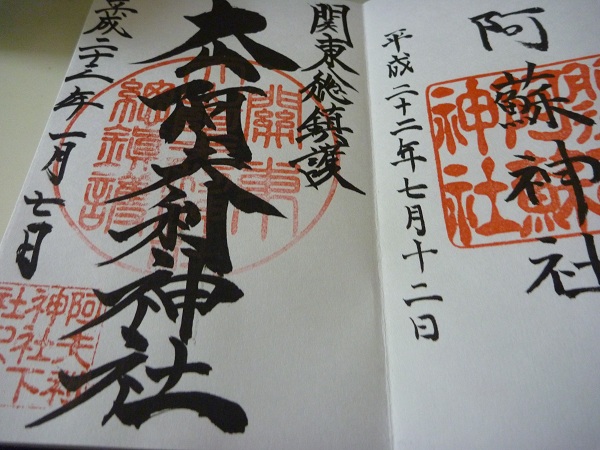 阿蘇神社
平成二十二年七月十二日
神社
関東総鎮護
大山阿夫利神社
平成二十三年一月七日
關東
總鎮護
阿夫利
神社下